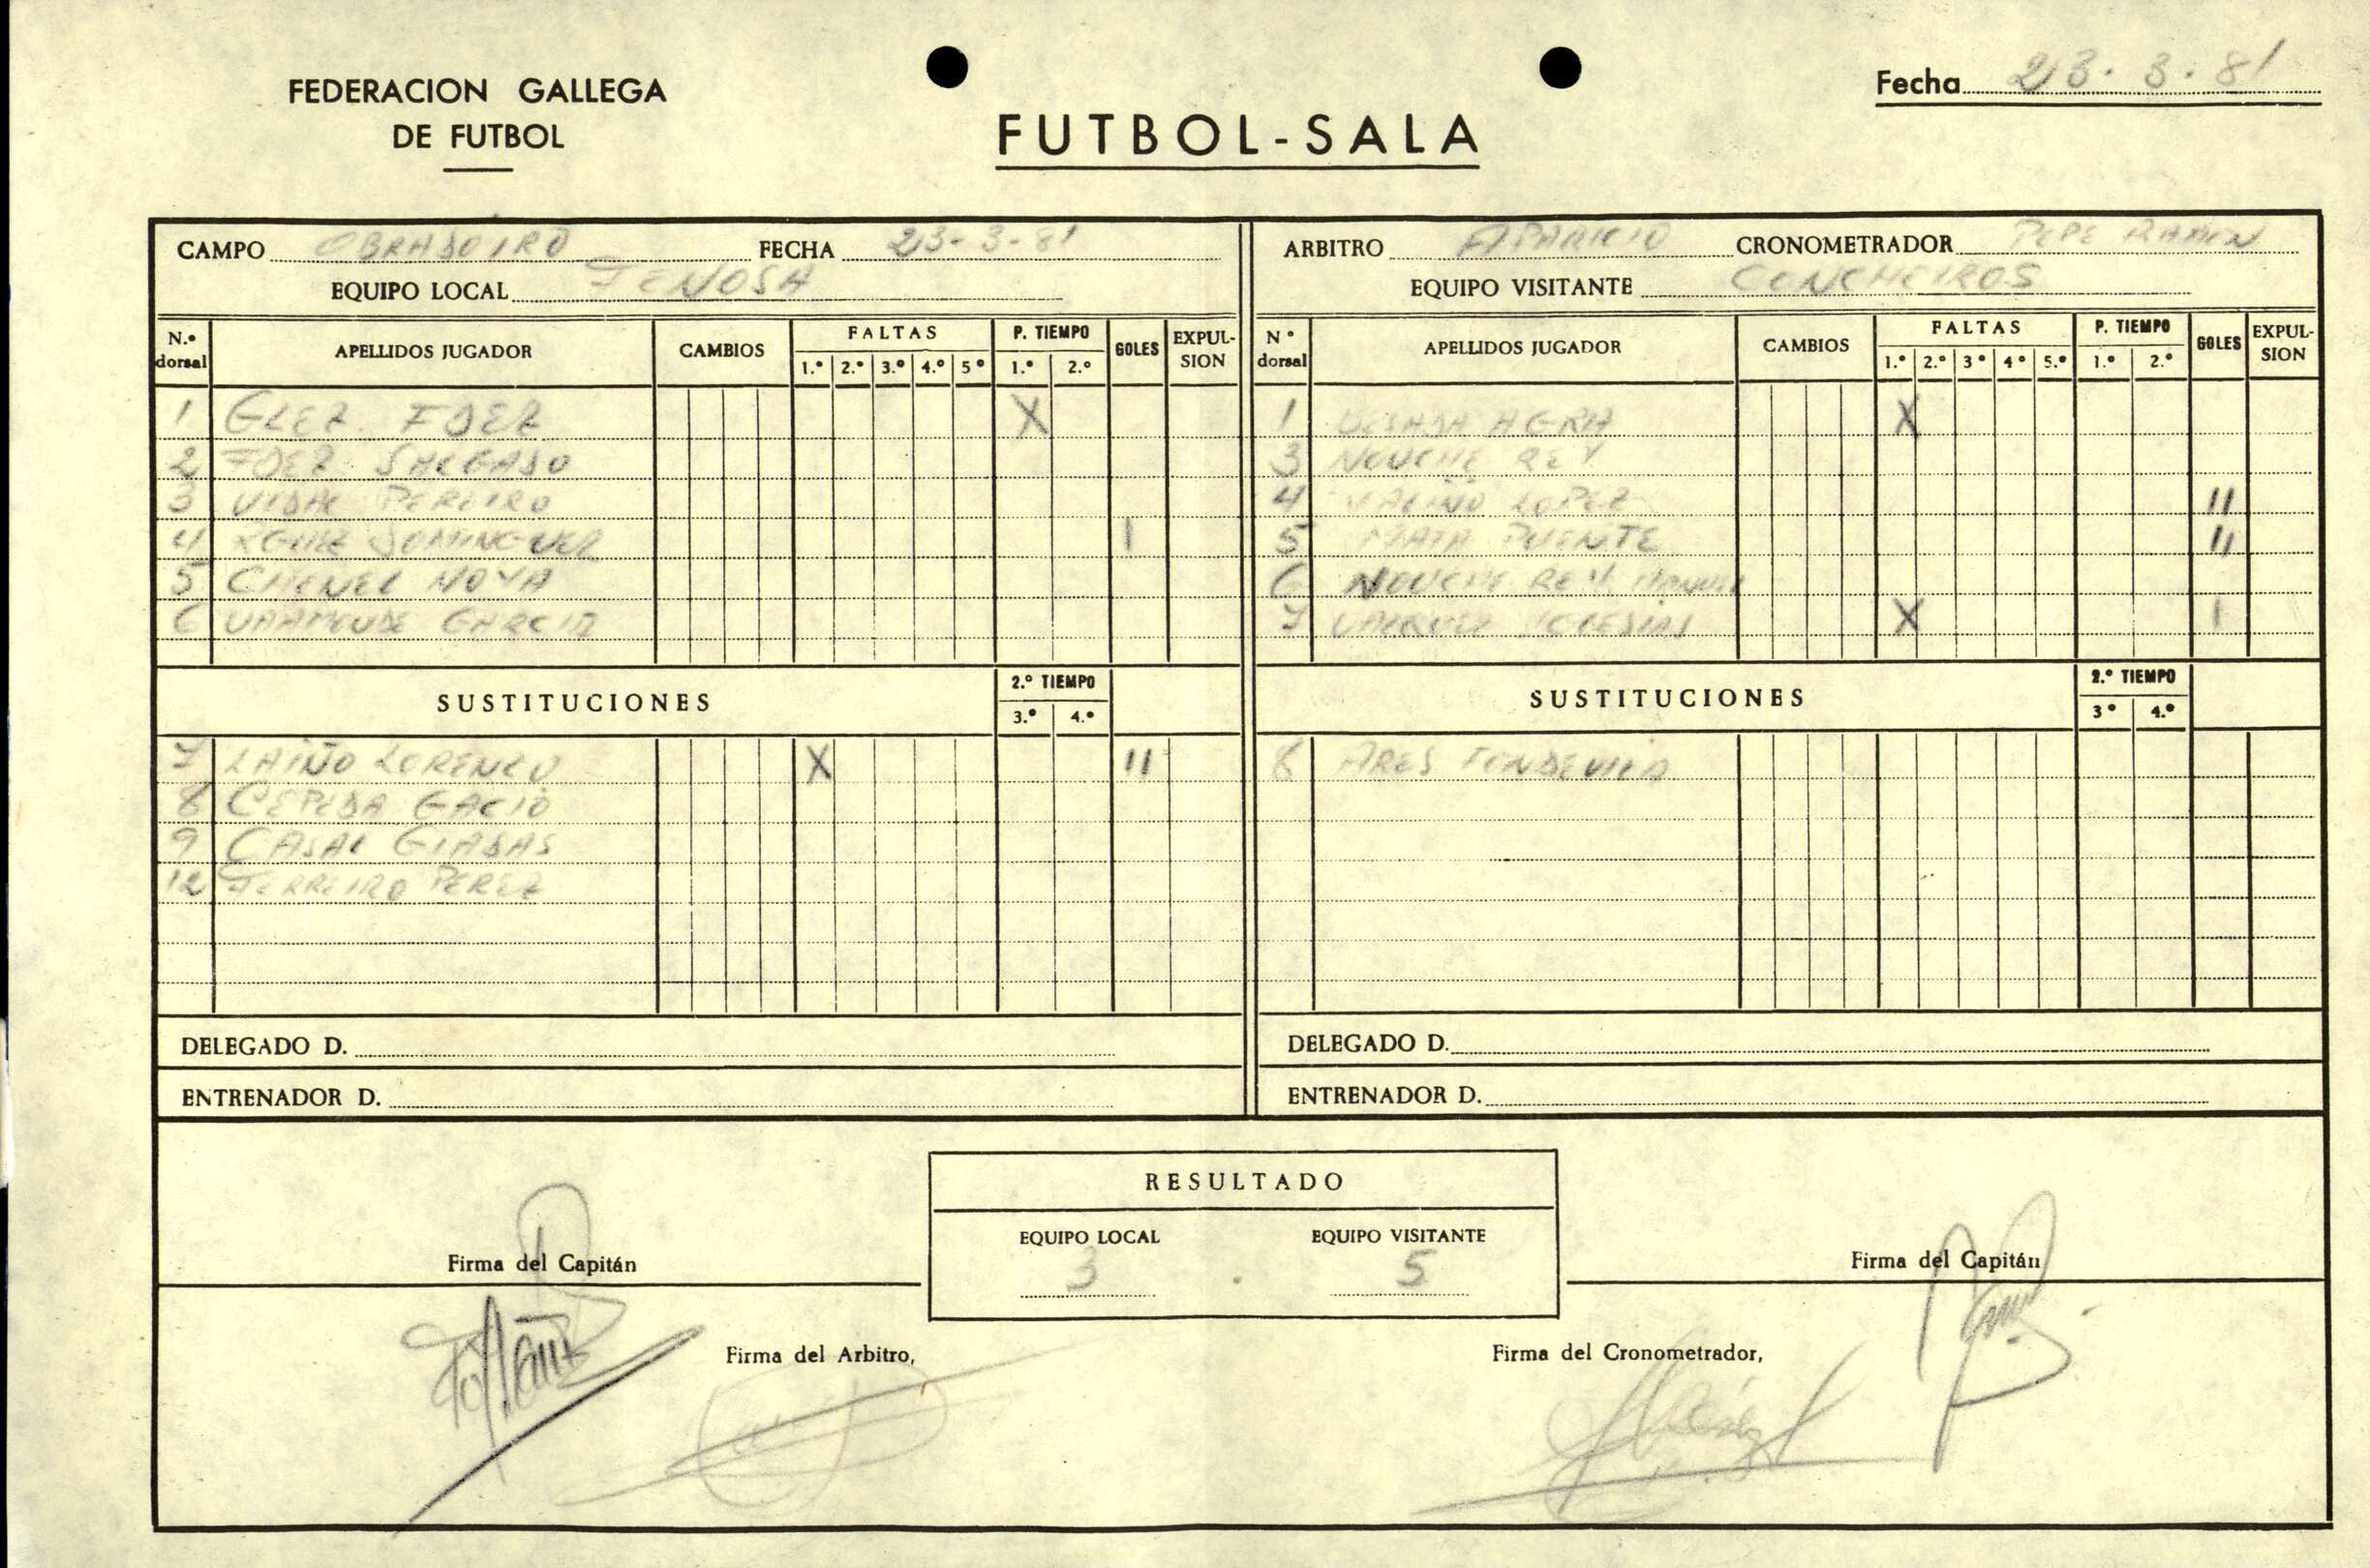 FEDERACION GALLEGA
DE FUTBOL
FUTBOL-SALA
Fecha 23-3-81
CAMPO OBRADOIRO FECHA 23-3-81
EQUIPO LOCAL FENOSA
N.º dorsal APELLIDOS JUGADOR CAMBIOS FALTAS 1.º 2.º 3.º 4.º 5º P. TIEMPO 1.º 2.º GOLES EXPUL-SION
1 GLEZ. FDEZ X
2 FDEZ. SALGADO
3 VIDAL PEREIRO
4 DOMINGUEZ I
5 CHENEL NOYA
6 VAAMONDE GARCIA
SUSTITUCIONES 2.º TIEMPO 3.º 4.º
7 LAIÑO LORENZO X II
8 CEPEDA GACIO
9 CASAL GIADAS
12 FERREIRO PEREZ
DELEGADO D.
ENTRENADOR D.
ARBITRO APARICIO CRONOMETRADOR PEPE RAMON
EQUIPO VISITANTE CONCHEIROS
N º dorsal APELLIDOS JUGADOR CAMBIOS FALTAS 1.º 2.º 3º 4º 5.º P. TIEMPO 1.º 2.º GOLES EXPUL-SION
1 AGRA X
3 NOUCHE REY
4 VALIÑO LOPEZ II
5 MATA PUENTE II
6 NOUCHE REY MANUEL
7 VAZQUEZ IGLESIAS X I
SUSTITUCIONES 2.º TIEMPO 3º 4.º
8 ARES FONDEVILA
DELEGADO D.
ENTRENADOR D.
RESULTADO
EQUIPO LOCAL EQUIPO VISITANTE
3 - 5
Firma del Capitán
Firma del Capitán
Firma del Arbitro,
Firma del Cronometrador,